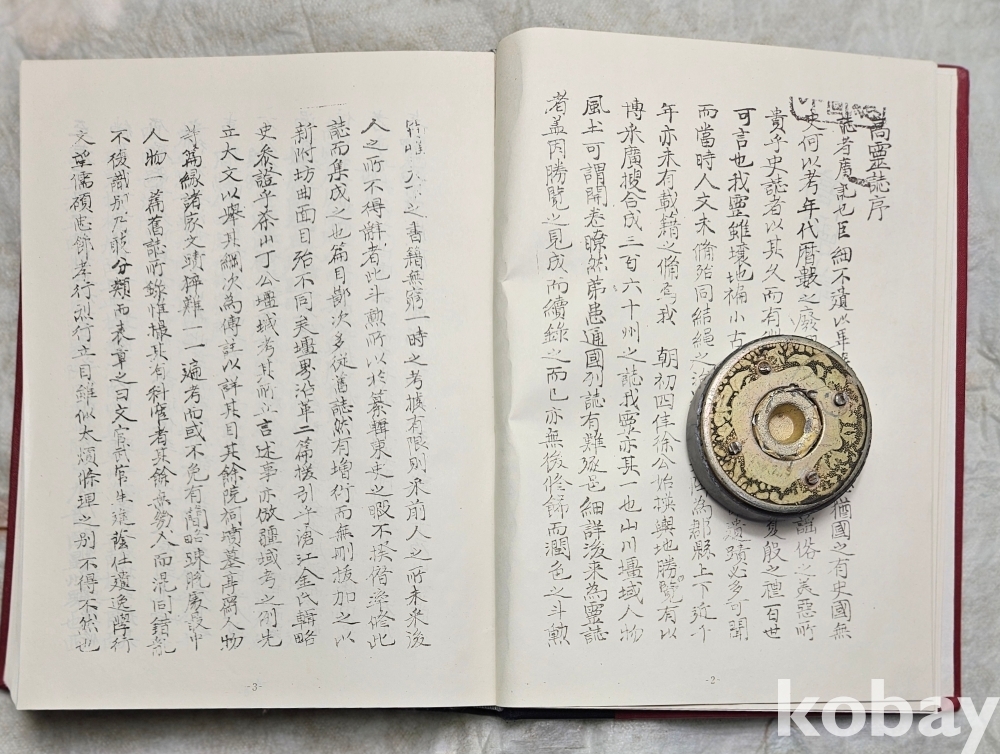 高靈誌序
誌者廣記也臣細不遺以年 猶國之有史國無
史何以考年代曆數之廢 謠俗之美惡所
貴乎史誌者以其久而有 夏殷之禮百世
可言也我靈雖壤地褊小古 遺蹟必多可聞
而當時人文未備殆同結繩之 為郡縣上下近千
年亦未有載籍之備焉我 朝初四佳徐公始撰輿地勝覽有以
博采廣搜合成三百六十州之誌我靈亦其一也山川疆域人物
風土可謂開卷瞭然第患通國列誌有難弦邑細詳後來為靈誌
者盖因勝覽之見成而續錄之而已亦無後修飾而潤色之斗勲
之書籍無窮一時之考據有限則采前人之所未采後
人之所不得辭者此斗勲所以於纂輯東史之暇不揆僭率修此
誌而集成之也篇目鄭次多從舊誌然有增衍而無刪拔加之以
新附坊曲面目殆不同矣疆界沿革二篇援引乎湝江金氏輯略
史叅證乎茶山丁公疆域考其所立言述事亦倣疆域考之例先
立大文以舉其綱次為傳註以詳其目其餘院祠墳墓亭閣人物
諸篇緣諸家文蹟狎難一一遍考而或不免有闕略疎脫處其中
人物一篇舊誌所錄惟據其有科宦者其餘亦勞人而混同錯亂
不後識別乃敢分類而表章之曰文官武官生進蔭仕遺逸學行
文望儒碩忠節孝行烈行立目雖似太煩條理之別不得不然也
-3-
-2-
kobay